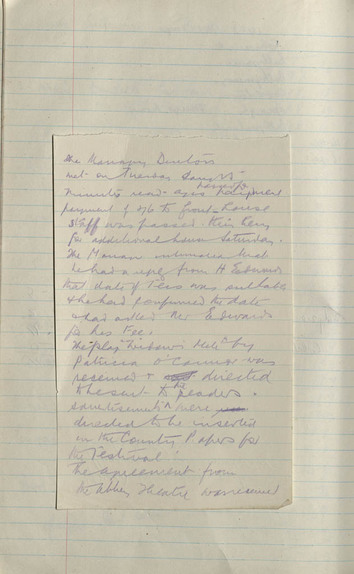 the Managing Directors
met on Tuesday Jany
Minutes read
payment of to front House
Staff was passed
for additional hours Saturday.
The Manager intimated that
he had a reply from H Edwards
that date of Feis was suitable
& he had confirmed the date
& had asked Mr Edwards
for his Fee.
The play by
Patricia O'Connor was
received & directed
to be sent to the readers.
advertisements were
directed to be inserted
in the Country Papers for
the Festival.
The agreement from
the Abbey Theatre was received